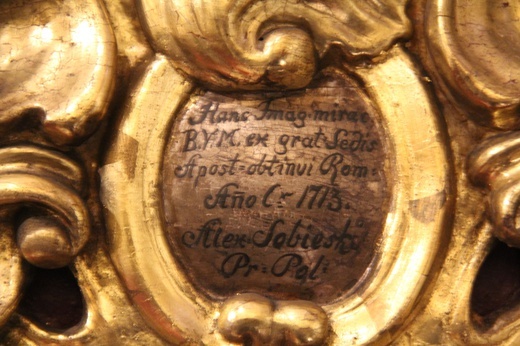 Hanc Imag: mirac
B.V.M. ex grat Sedis
Apost: obtinui Rom:
Año C: 1713.
Alex Sobiesky
Pr: Pol: